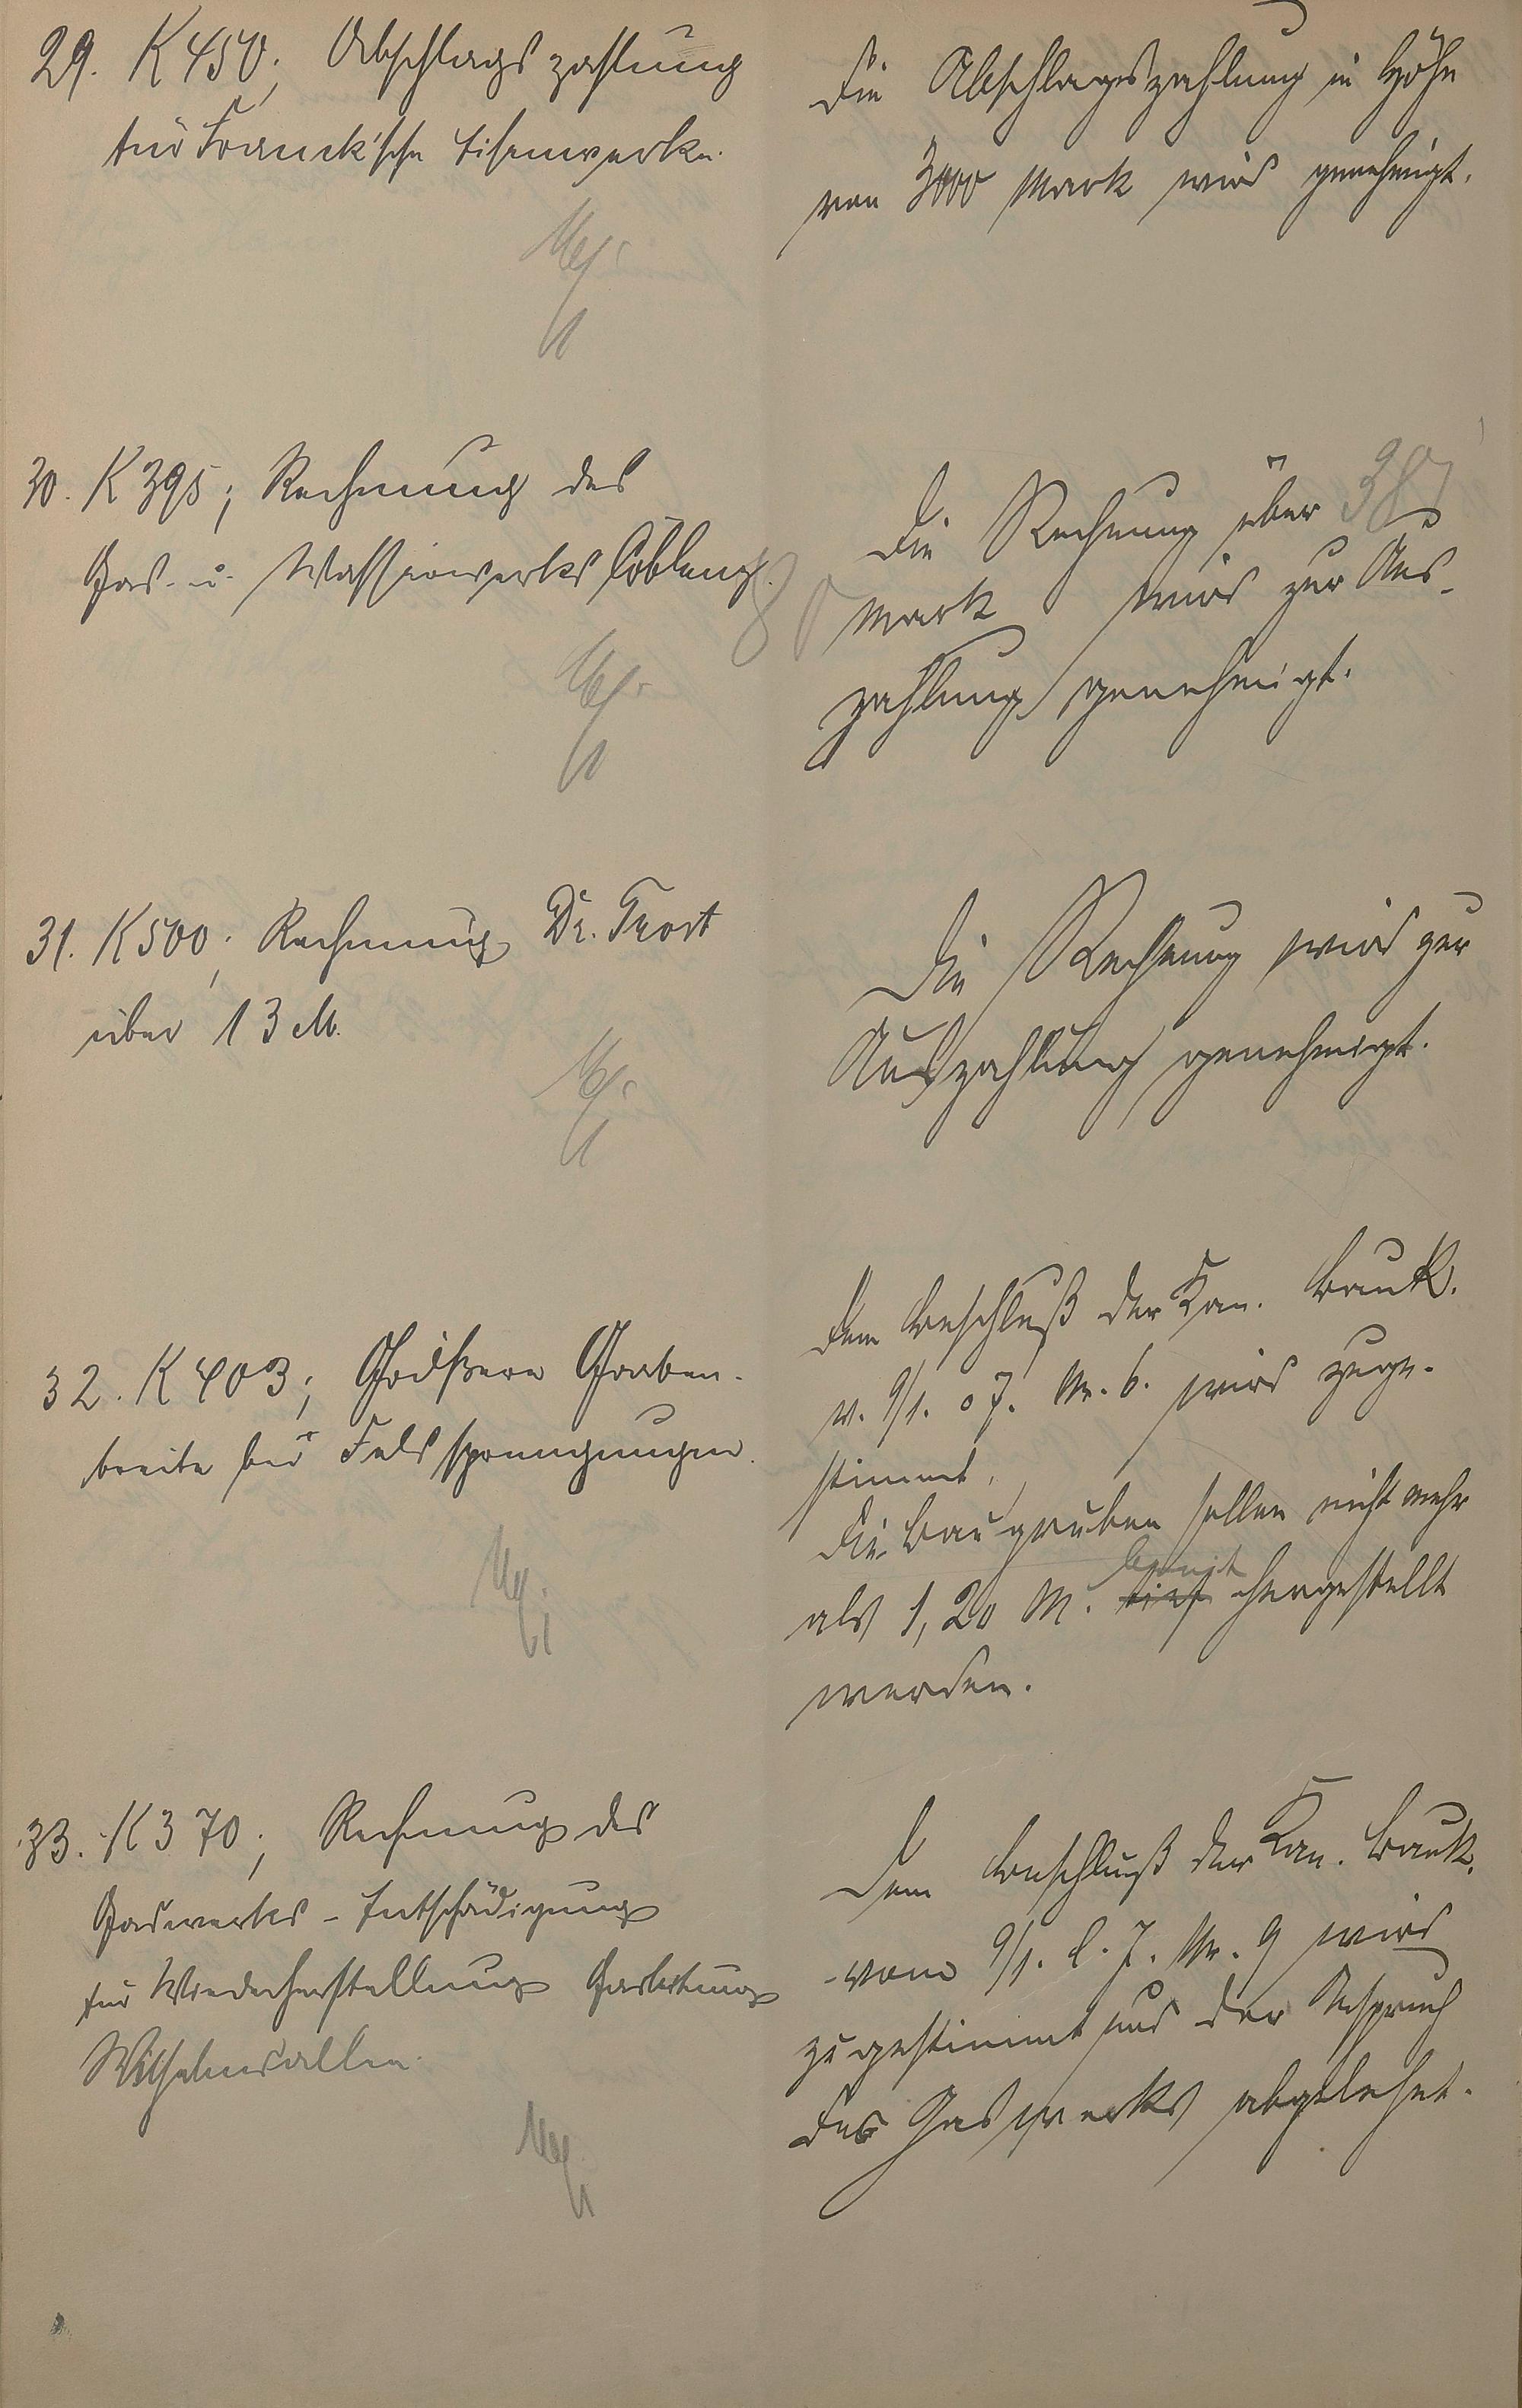 29. K 450; Abschlagszahlung
für Franck'sche Eisenwerke.
Die Abschlagszahlung in Höhe
von 3000 Mark wird genehmigt.
30. K 395; Rechnung des
Gas- u. Wasserwerks Coblenz.
Die Rechnung über
Mark wird zur Aus-
zahlung genehmigt.
31. K 500; Rechnung Dr. Trost
über 13 M.
Die Rechnung wird zur
Auszahlung genehmigt.
32. K 403; Größere Graben-
breite bei Felssprengungen.
Dem Beschluß der Kan. Bauk.
v. 9/1. 07. Nr. 6. wird zuge-
stimmt.
Die Baugruben sollen nicht mehr
als 1,20 M. tief breit hergestellt
werden.
33. K 370; Rechnung des
Gaswerks - Entschädigung
für Wiederherstellung Gasleitung
Wilhelmsallee.
Dem Beschluß der Kan. Bauk.
vom 9/1. l. J. Nr. 9 wird
zugestimmt und der Anspruch
des Gaswerks abgelehnt.